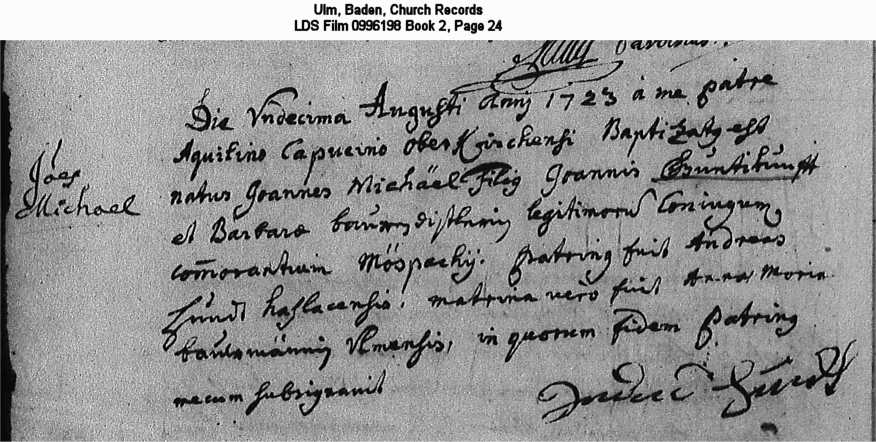 Ulm, Baden, Church Records
LDS Film 0996198 Book 2, Page 24
Die Vndecima Augusti Anni 1723 à me patre
Aquilino Capucino oberKirchensi Baptizatus est
Jões
natus Joannes Michäel Filius Joannis
Michael
et Barbarae legitimorum Coniugum
com̄orantium Möspachij. Patrinus fuit Andreas
Hundt haslacensis, matrina vero fuit Anna Maria
baurmännin Vlmensis, in quorum fidem Patrinus
mecum subsignavit